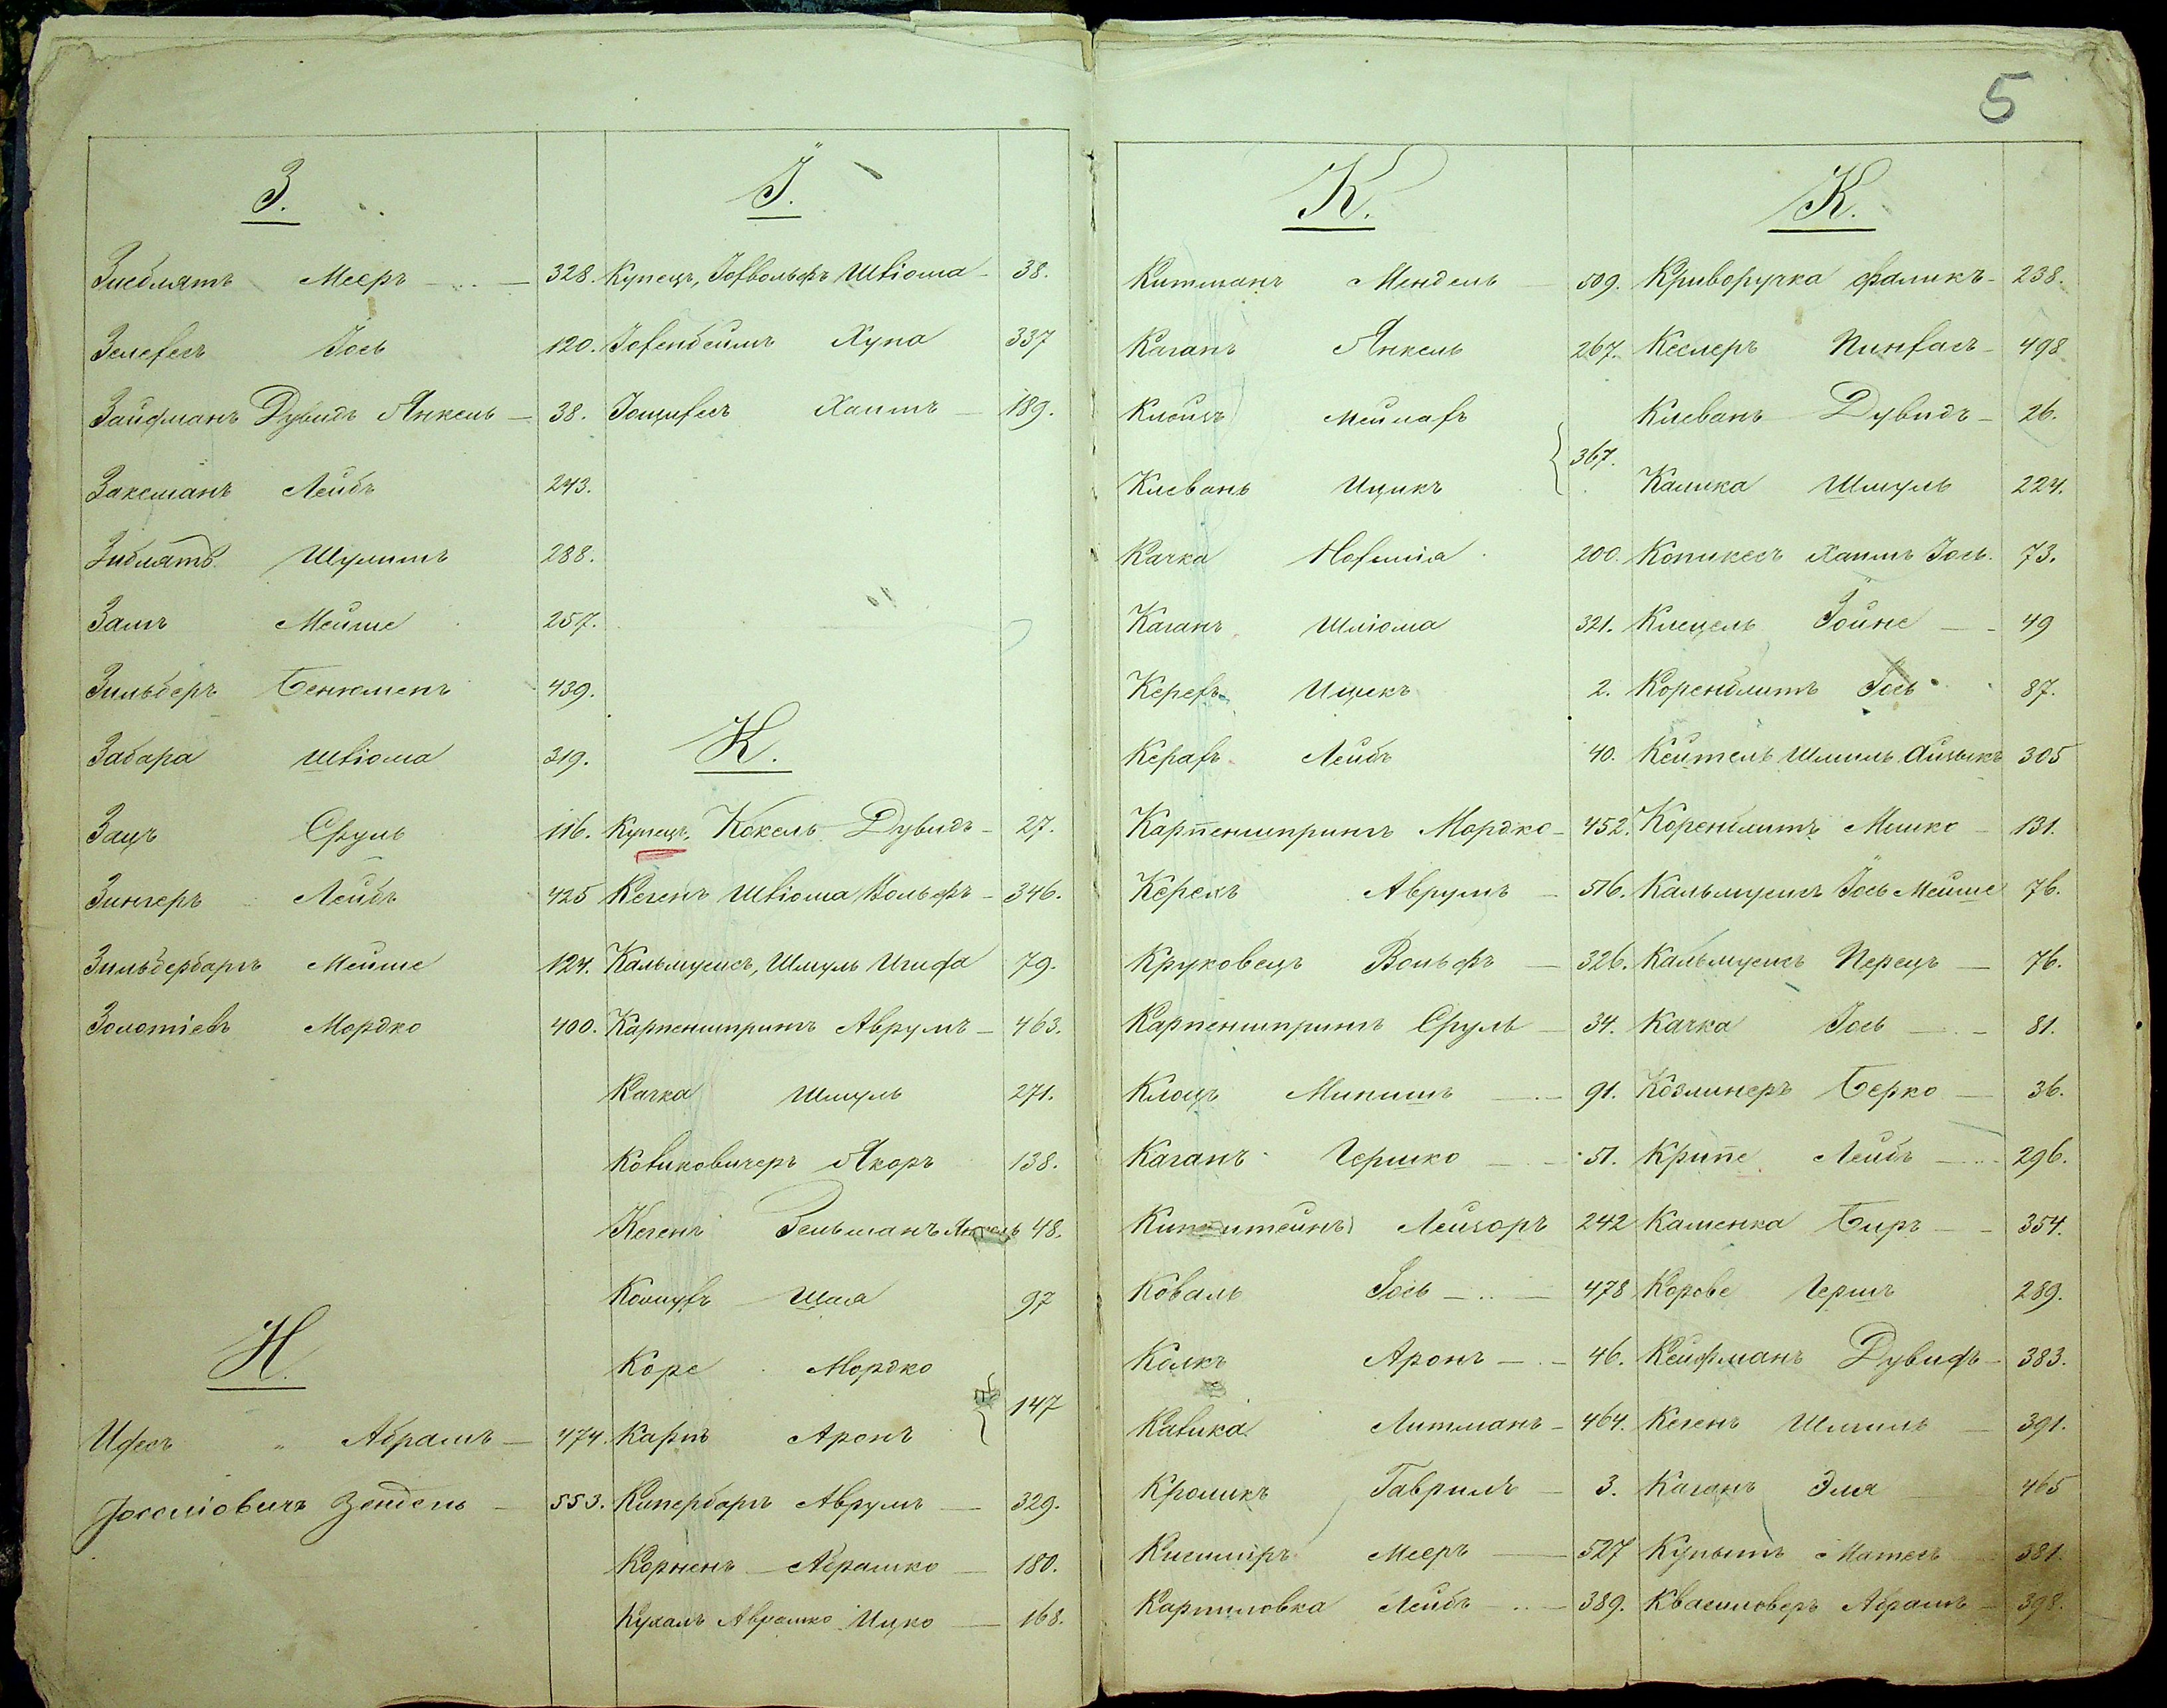 5
З.
Мееръ 328.
Іось 120.
Зайфманъ Дувидъ Янкель 38.
Заксманъ Лейбъ 243.
Зиблятъ Шулимъ 288.
Замъ Мейше 257.
Зильберъ Бенюменъ 439.
Забара Шліома 319.
Зацъ Сруль 116.
Зингеръ Лейбъ 425
Зильбербаръ Мейше 124.
Золотіевъ Мордко 400.
И.
Абрамъ 474.
Зендень 553.
І.
Купецъ, Шліома 38.
337
Хаимъ 189.
К.
Купецъ, Кокель Дувидъ 27.
Кегенъ Шліома Вольфъ 346.
Кальмуесъ, Шмуль 79.
Карпеншпринъ Аврумъ 463.
Качка Шмуль 271.
138.
Кегенъ Зельманъ 48.
Шая 97
Коре Мордко
147
Карпъ Аронъ
Киперборъ Аврумъ 329.
Корненъ Абрашко 180.
Кухаль Аврашко Ицко 168.
К.
Китманъ Мендель 509.
Каганъ Янкель 267.
367.
Клеванъ Ицикъ
Качка 200.
Каганъ Шліома 321.
Ицекъ 2.
Лейбъ 40.
Карпеншпринъ Мордко 452.
Керекъ Аврумъ 516.
Круковецъ Вольфъ 326.
Карпеншпринъ Сруль 34.
Клоцъ 91.
Каганъ Гершко 51.
Лейзоръ 242
Коваль Іось 478
Колкъ Аронъ 46.
Литманъ 464.
Кроликъ Гаврилъ 3.
Мееръ 527
Карпиловка Лейбъ 389.
К.
Криворучка Фаликъ 238.
Кеслеръ Пинхасъ 498
Клеванъ Дувидъ 26.
Калика Шмуль 224.
Копикесъ Хаимъ Іось 73.
Клецель Іойне 49
Коренблитъ Іось 87.
Кейтель Шмиль Айзыкъ 305
Коренблитъ Мошко 131.
Кальмуесъ Іось Мейше 76.
Кальмуесъ Перецъ 76.
Качка Іось 81.
Козлинеръ Берко 36.
Крипе Лейбъ 296.
Каменка Биръ 354.
Корове Гершъ 289.
Кейфманъ Дувидъ 383.
Кегенъ Шмиль 391.
Каганъ Эля 465
Матесъ 381.
Квасиловеръ Абрамъ 398.